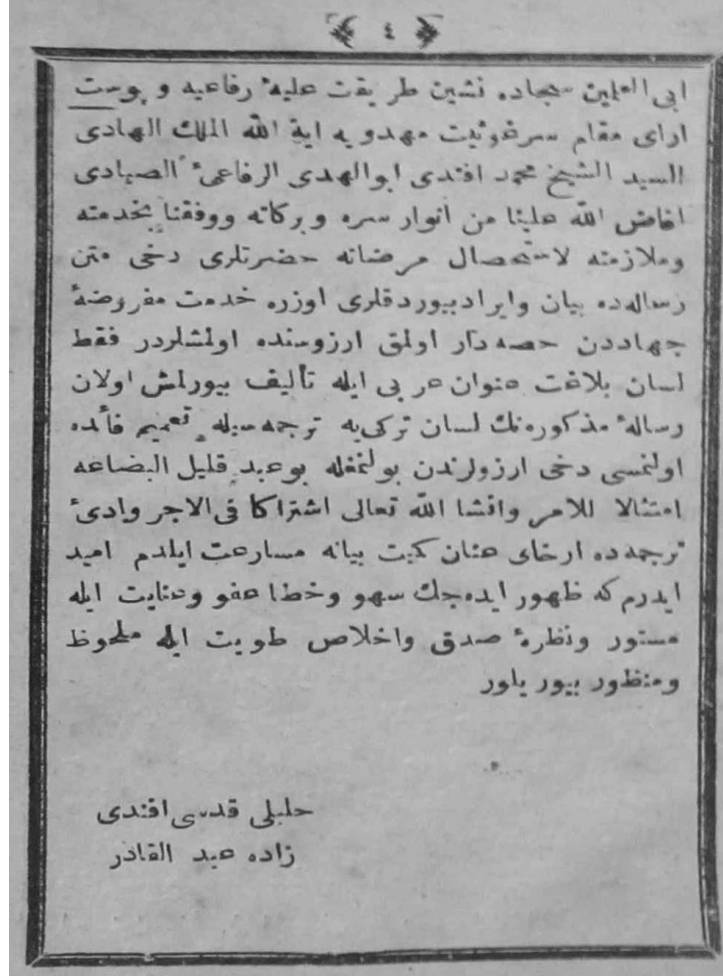 ٤
ابی العلمین سجاده نشین طریقت علیهٔ رفاعیه و پوست
ارای مقام سرغوثیت مهدویه ایة الله الملك الهادی
السید الشیخ محمد افندی ابوالهدی الرفاعیٔ الصیادی
افاض الله علینا من انوار سره وبركاته ووفقنا بخدمته
وملازمته لاستحصال مرضاته حضرتلری دخی متن
رساله‌ده بیان وایراد بیوردقلری اوزره خدمت مفروضهٔ
جهاددن حصه دار اولمق ارزوسنده اولمشلردر فقط
لسان بلاغت عنوان عربی ایله تألیف بیورلمش اولان
رسالهٔ مذكوره‌نك لسان تركی‌یه ترجمه سیله تعمیم فائده
اولنمسی دخی ارزولرندن بولنمغله بوعبد قلیل البضاعه
امتثالا للامر وانشا الله تعالی اشتراكا فی الاجر وادیٔ
ترجمه‌ده ارخای عنان كمیت بیانه مسارعت ایلدم امید
ایدرم كه ظهور ایده‌جك سهو وخطا عفو وعنایت ایله
مستور ونظرهٔ صدق واخلاص طویت ایله ملحوظ
ومنظور بیوریلور
حلبلی قدسی افندی
زاده عبد القادر